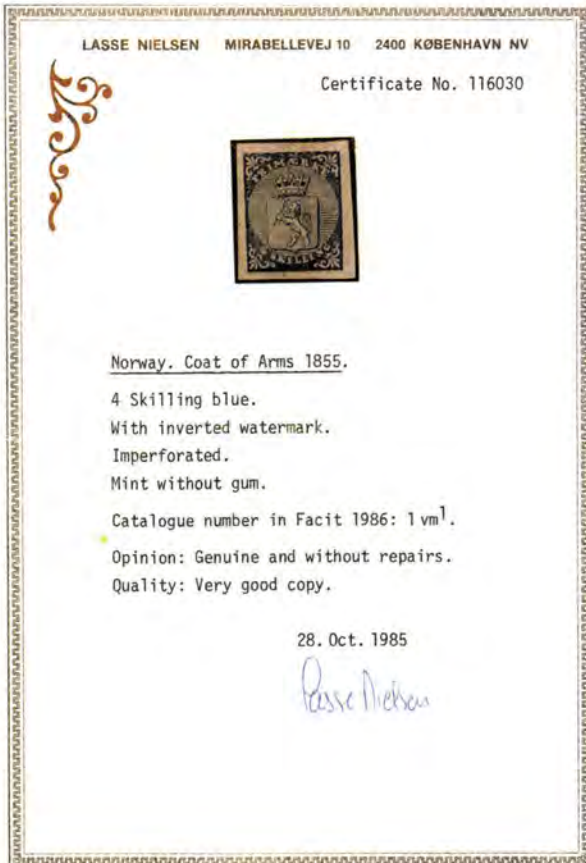 LASSE NIELSEN MIRABELLEVEJ 10 2400 KØBENHAVN NV
Certificate No. 116030
FRIMÆRKE
SKILLING
Norway. Coat of Arms 1855.
4 Skilling blue.
With inverted watermark.
Imperforated.
Mint without gum.
Catalogue number in Facit 1986: 1 vm¹.
Opinion: Genuine and without repairs.
Quality: Very good copy.
28. Oct. 1985
Lasse Nielsen